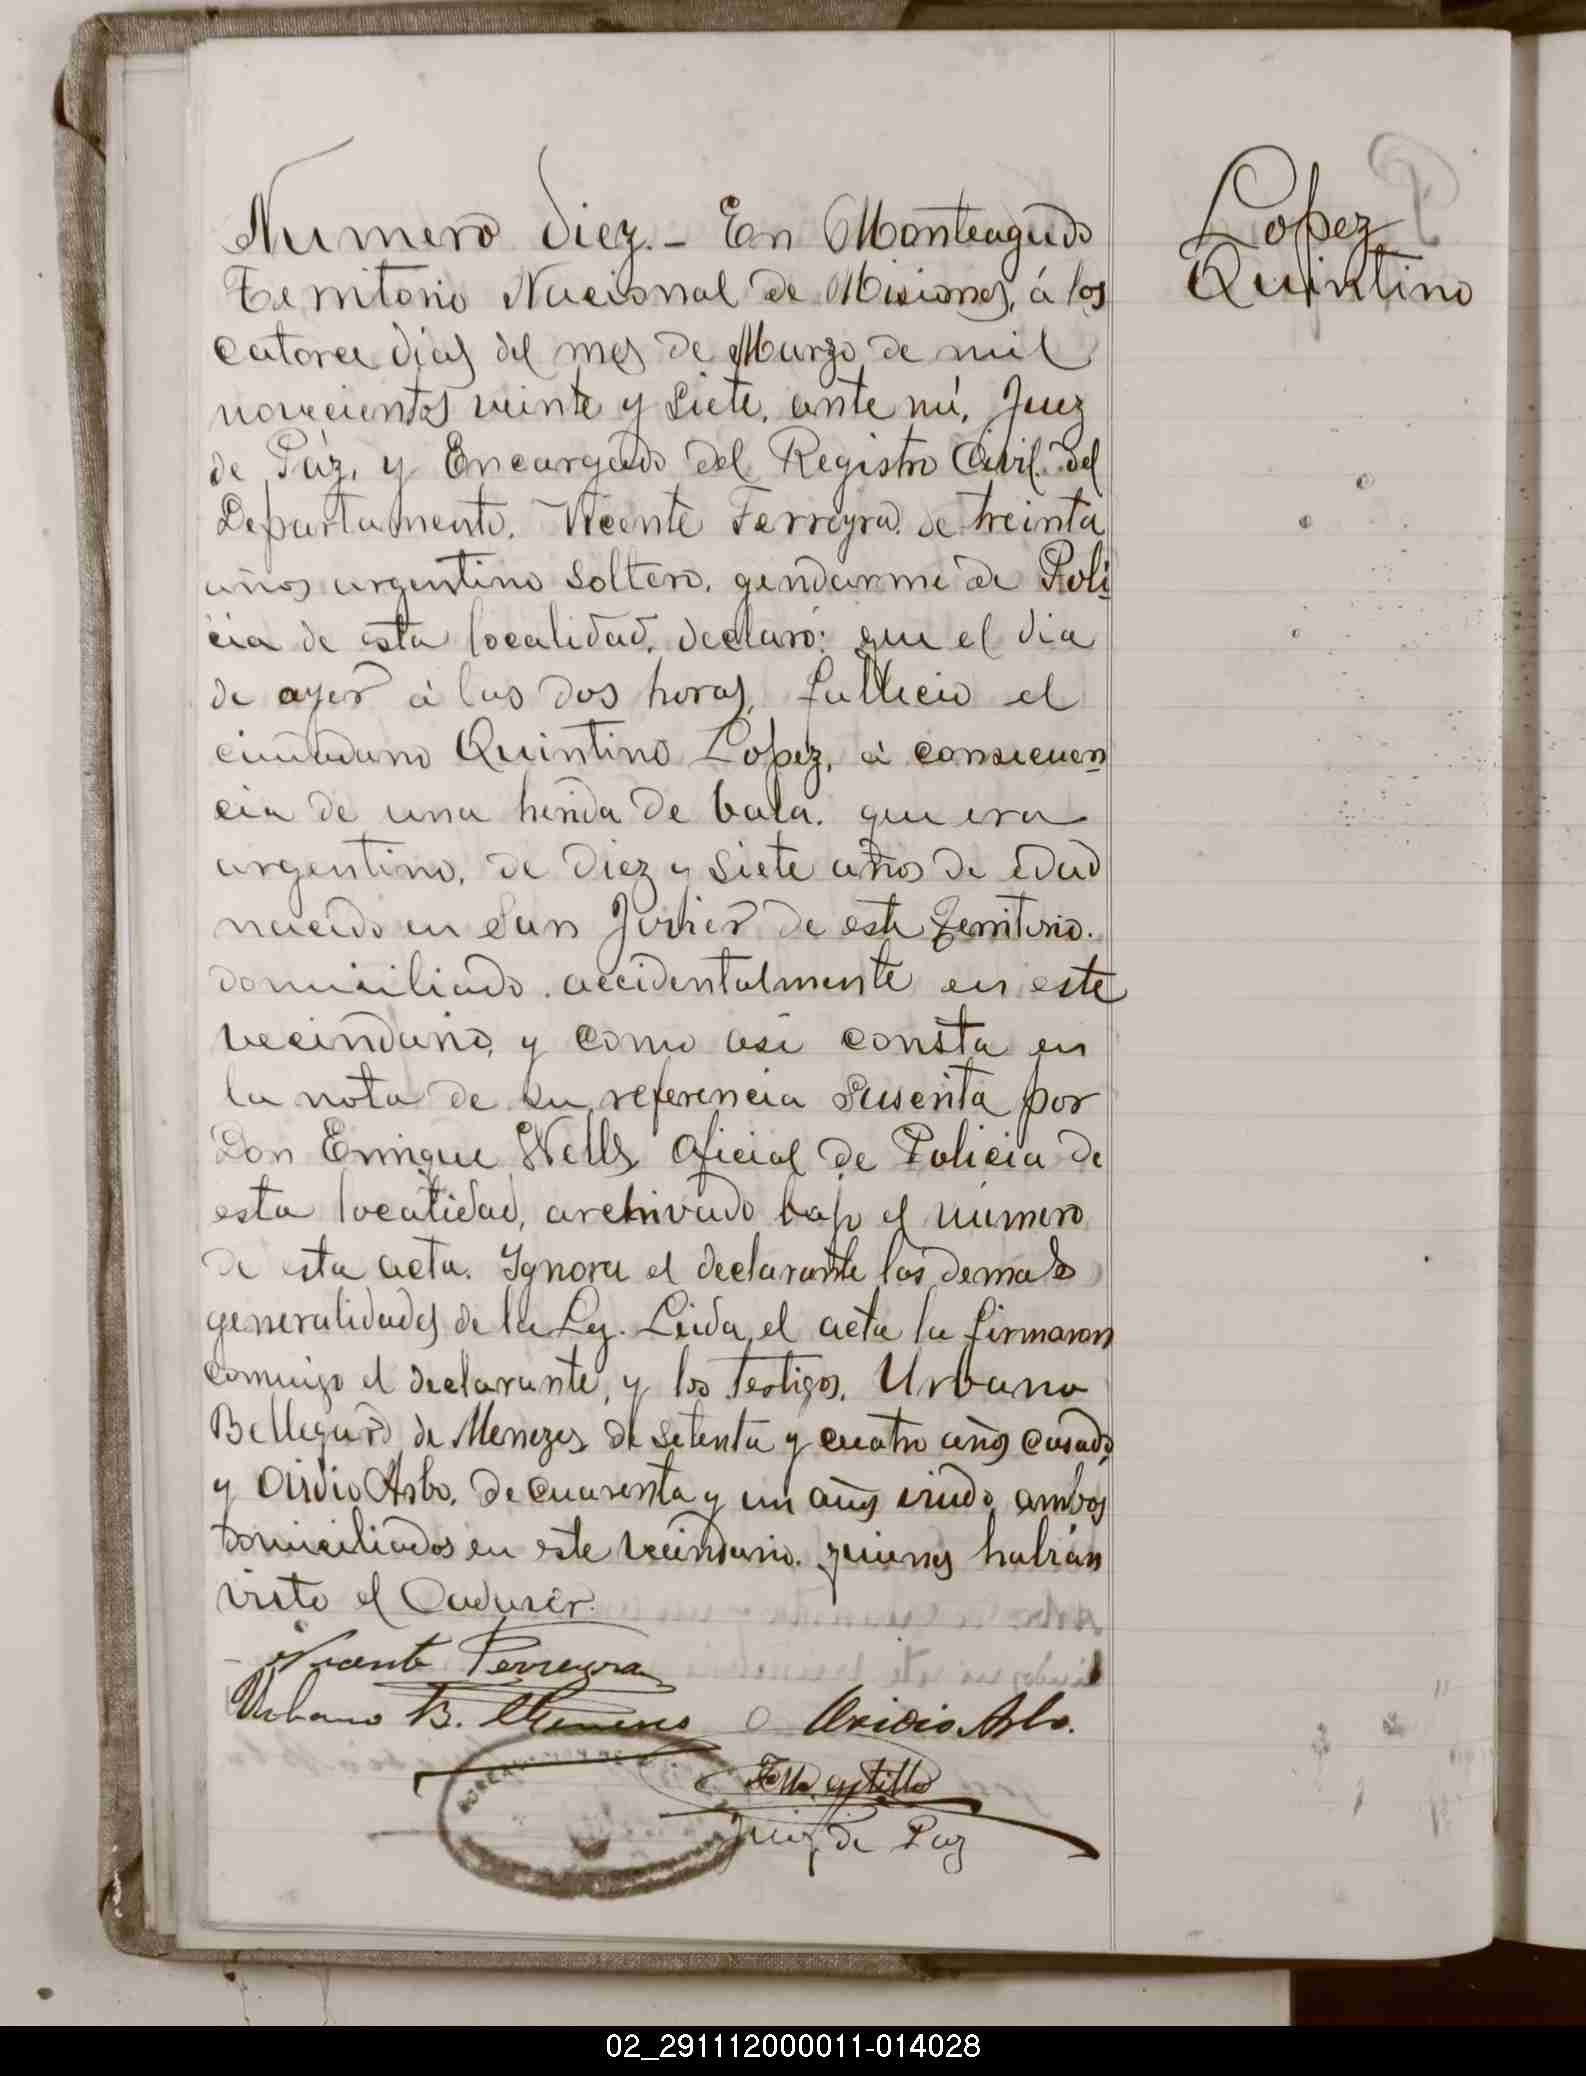 Lopez
Quintino
Numero diez.- En Monteagudo
Territorio Nacional de Misiones, á los
catorce dias del mes de Marzo de mil
novecientos veinte y siete, ante mí, Juez
de Páz, y Encargado del Registro Civil del
Departamento, Vicente Ferreyra de treinta
años argentino soltero, gendarme de Poli
cia de esta localidad, declaró: que el dia
de ayer á las dos horas, fallecio el
ciudadano Quintino Lopez, á consecuen
cia de una herida de bala. que era
argentino, de diez y siete años de edad
nacido en San Javier de este Territorio.
domiciliado accidentalmente en este
vecindario, y como asi consta en
la nota de su referencia suscrita por
Don Enrique Wells oficial de Policia de
esta localidad, archivado bajo el número
de esta acta. Ignora el declarante las demas
generalidades de la Ley. Leida el acta la firmaron
conmigo el declarante, y los testigos, Urbano
Bellegard de Menezes de setenta y cuatro años casado,
y Ovidio Arbo, de cuarenta y un años viudo, ambos
domiciliados en este vecindario. quienes habían
visto el Cadaver.
Vicente Ferreyra
Urbano B. Menezes Ovidio Arbo.
Juez de Paz
02_291112000011-014028